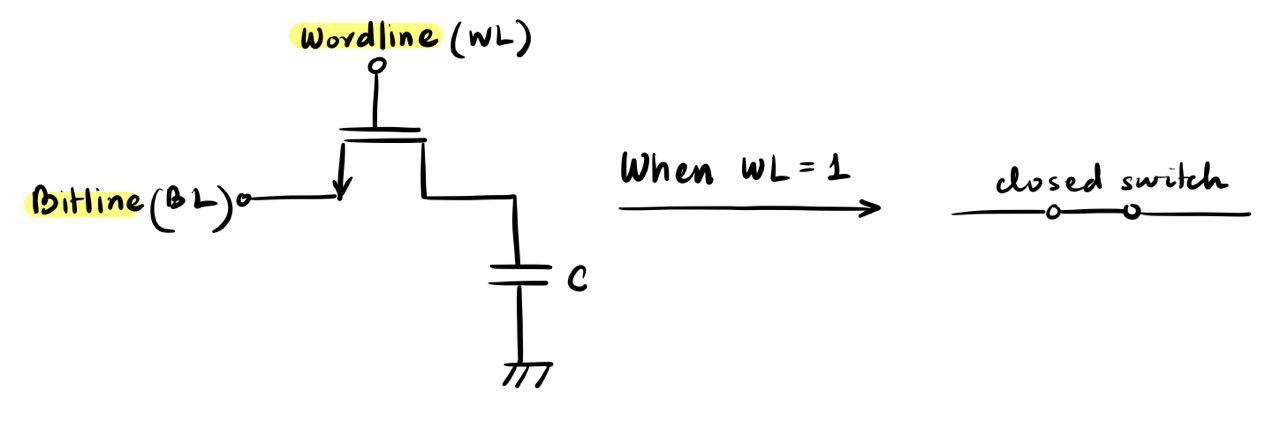 Wordline (WL)
Bitline (BL)
C
When WL = 1
closed switch